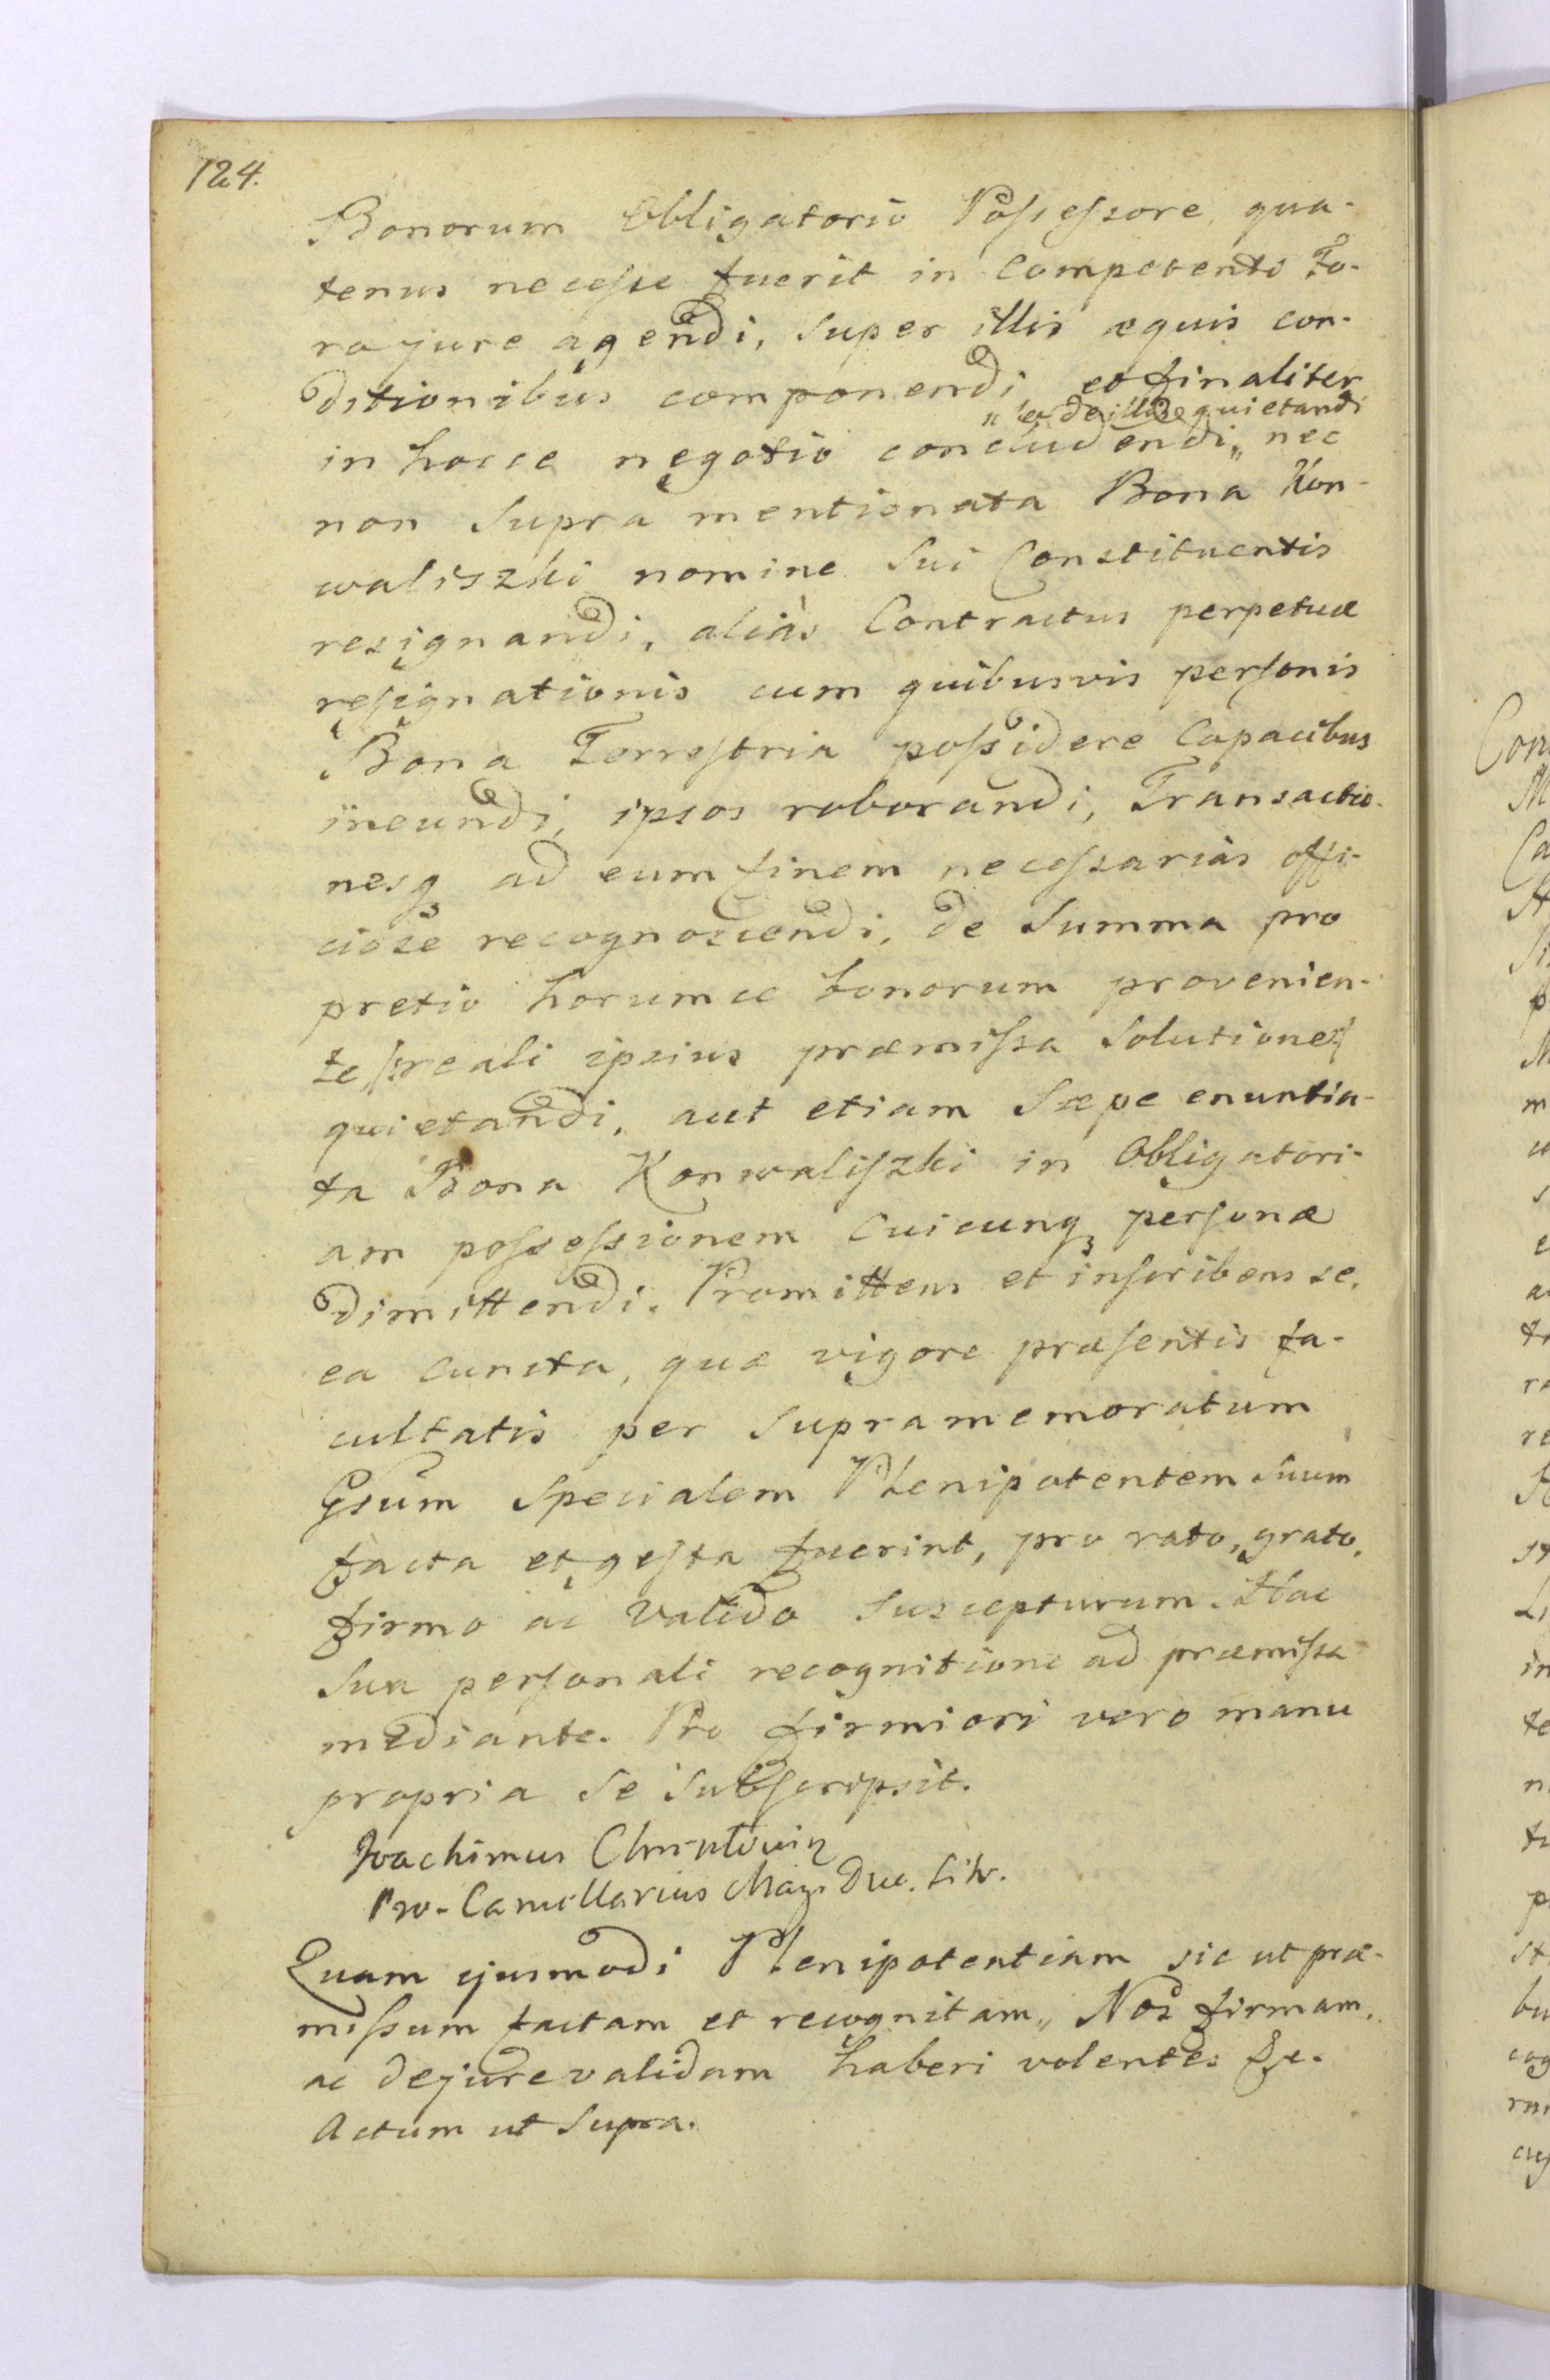 124.
Bonorum Obligatorio Possessore, qua-
tenus necesse fuerit in Competenti Fo-
ro jure agendi, super illis æquis con-
ditionibus componendi et finaliter
„ et de illis quietandi
in hocce negotio concludendi „ nec
non supra mentionata Bona Kon-
waliszki nomine sui Constituentis
resignandi, aliàs Contractus perpetuæ
resignationis cum quibusvis personis
Bona Terrestria possidere Capacibus
ineundi, ipsos roborandi, Transactio-
nesq ad eum finem necessarias offi-
ciose recognoscendi, de Summa pro
pretio horumce bonorum provenien-
te /:reali ipsius præmissa solutione:/
quietandi, aut etiam Sæpe enuntia-
ta Bona Konwaliszki in Obligatori-
am possessionem Cuicunq personæ
dimittendi. Promittens et inscribens se,
ea cuncta, quæ vigore præsentis fa-
cultatis per supra memoratum
Gsum Specialem Plenipotentem suum
facta et gesta fuerint, pro rato, grato,
firmo ac valido suscepturum. Hac
sua personali recognitione ad præmissa
mediante. Pro firmiori vero manu
propria se subscripsit.
Joachimus Chreptowicz
Pro-Cancellarius Mag. Duc. Litv.
Quam ejusmodi Plenipotentiam sic ut præ-
missum factam et recognitam, Nos firmam,
ac de jure validam haberi volentes &c.
Actum ut supra.